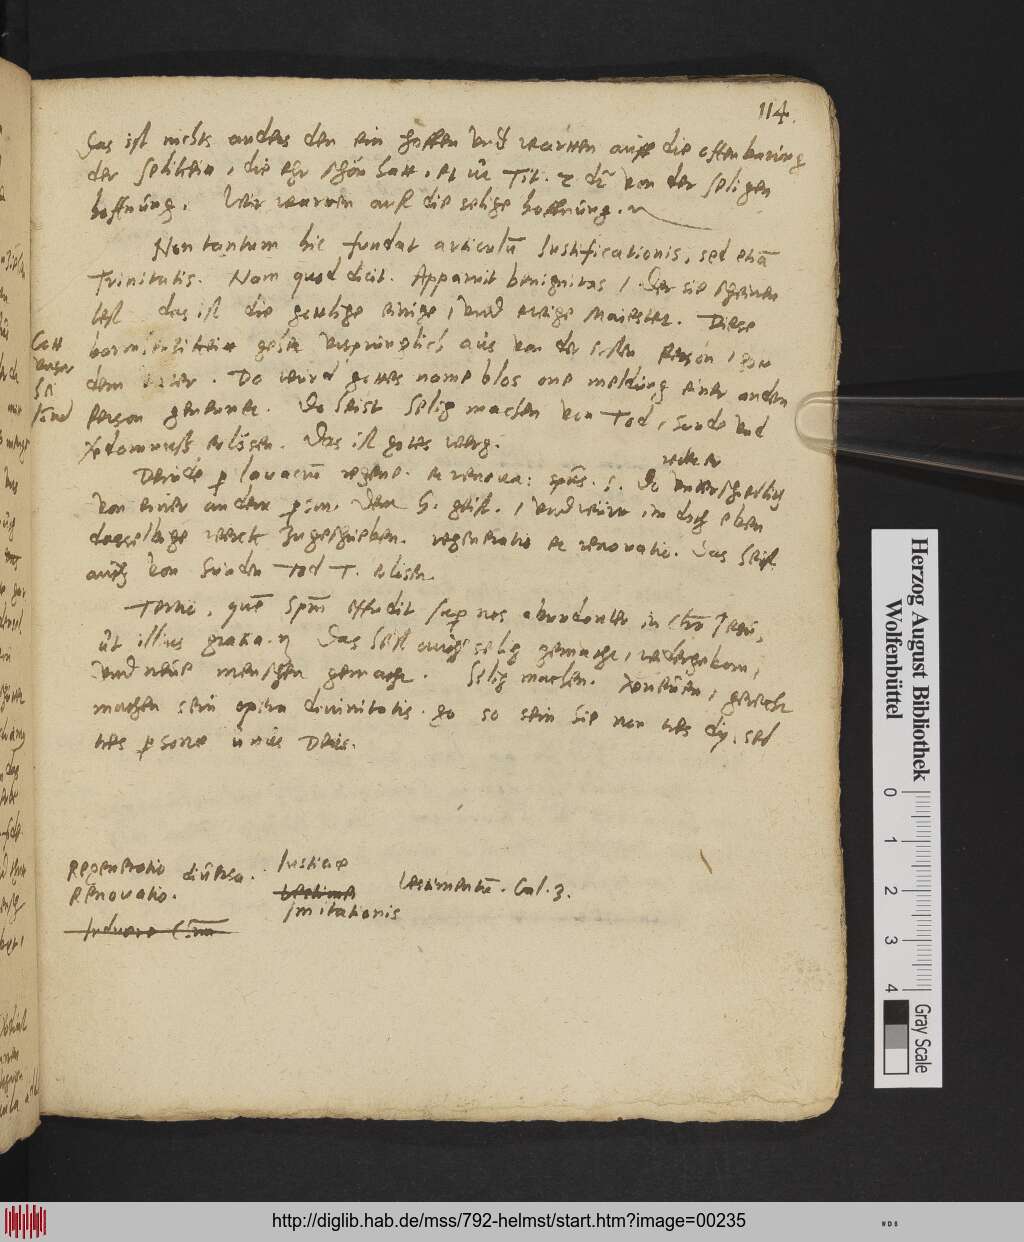 114.
das ist nichts anders den ein hoffen und warten auff die offenbaring
der selikeit, die ehr schon hatt. et ut Tit. 2 dr von der seligen
hoffnung. Wir warten auff die selige hoffnung.
Non tantum hic fundat articulu Iustificationis, sed etia
Trinitatis. Nam quod dicit. Apparuit benignitas / der sie scheinen
lest das ist die gottlige einige, und ewige Maiestet. Diese
barmhertzikeit gehet ursprunglich aus von der ersten Person, gott
dem vater. Do wurd gottes name blos one meldung einer andern
Person genennet. Do heist selig machen von Tod, sunde und
verdamnuss erlosen. Das ist gotts werg.
Gott
unser
hei
land
Deinde p lavacru regene. et renova: spus. s. Do unterscheidig
redet er
von einer andern pson. Dem h. geist. / und wirt im doch eben
dasselbige werck zugeschrieben. regeneratio et renovatio. Das heist
auch von sunden Tod T. erlosen.
Tertio, que spm effudit sup nos abundanter in Chro Jesu,
ut illius gratia. Das heist auch selig gemacht, widergeborn,
und neue menschen gemacht. Selig machen. verneuen, gerecht
machen sein opera divinitatis. go so sein sie non tres dij. sed
tres psone unus Deus.
Regeneratio
Renovatio. diversa.
Induere Chm
Iustitiae
vestitus
Imitationis
Vestimentu. Gal. 3.
Herzog August Bibliothek
Wolfenbüttel
0 1 2 3 4
Gray Scale
http://diglib.hab.de/mss/792-helmst/start.htm?image=00235
WDB